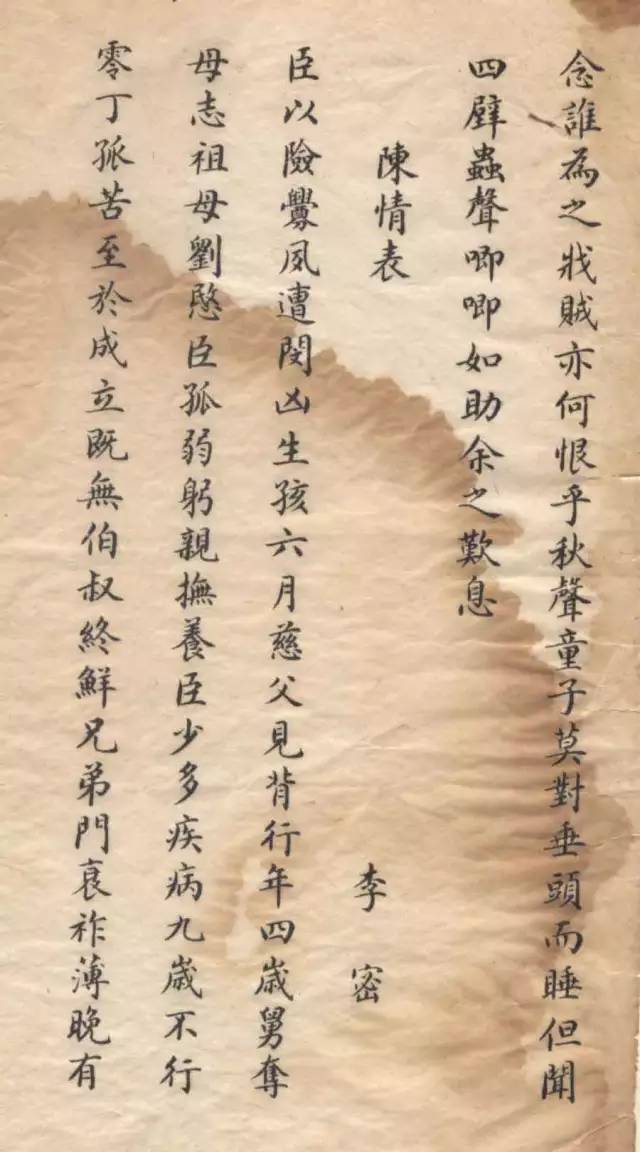 念誰為之戕賊亦何恨乎秋聲童子莫對垂頭而睡但聞
四壁蟲聲唧唧如助余之歎息
陳情表
李密
臣以險釁夙遭閔凶生孩六月慈父見背行年四歲舅奪
母志祖母劉愍臣孤弱躬親撫養臣少多疾病九歲不行
零丁孤苦至於成立既無伯叔終鮮兄弟門衰祚薄晚有